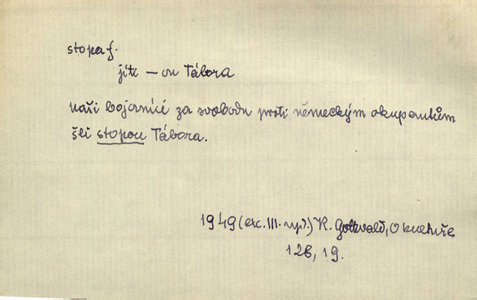 stopa f.
jíti –ou Tábora
naši bojovníci za svobodu proti německým okupantům
šli stopou Tábora.
1949 (exc. III. vyd.) K. Gottwald, O kultuře
126, 19.